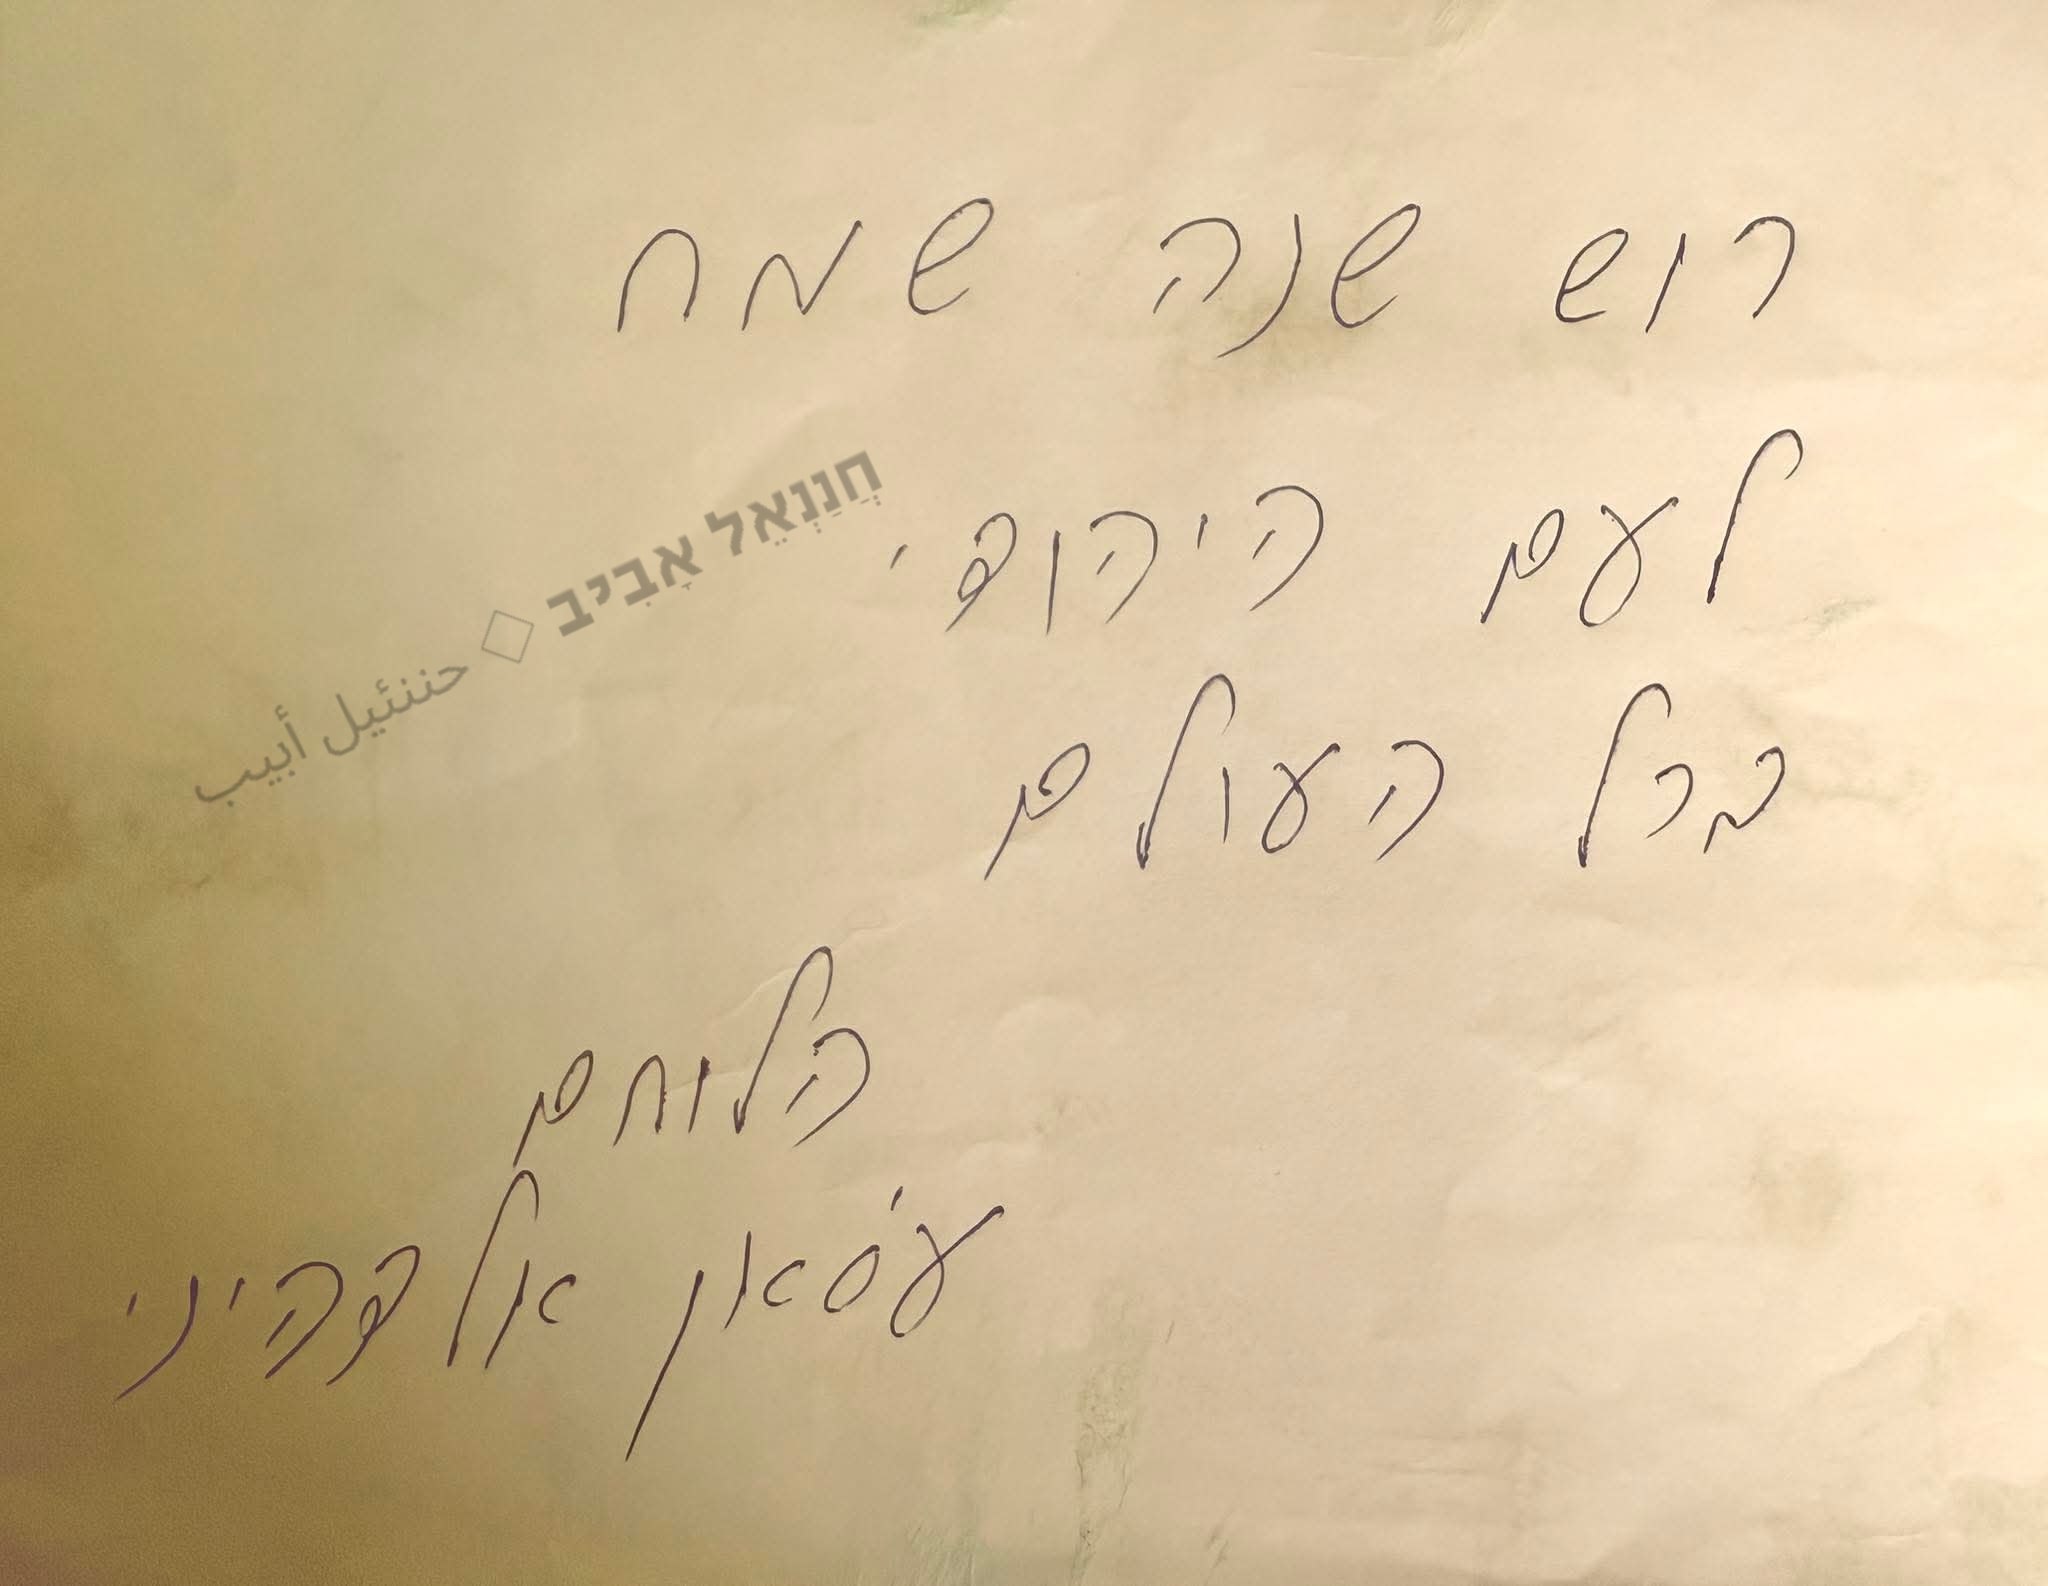 רוש שנה שמח
לעם היהודי
בכל העולם
הלוחם
ע'סאן אלדהיני
חֲנַנְאֵל אָבִיב ◇ حننئيل أبيب